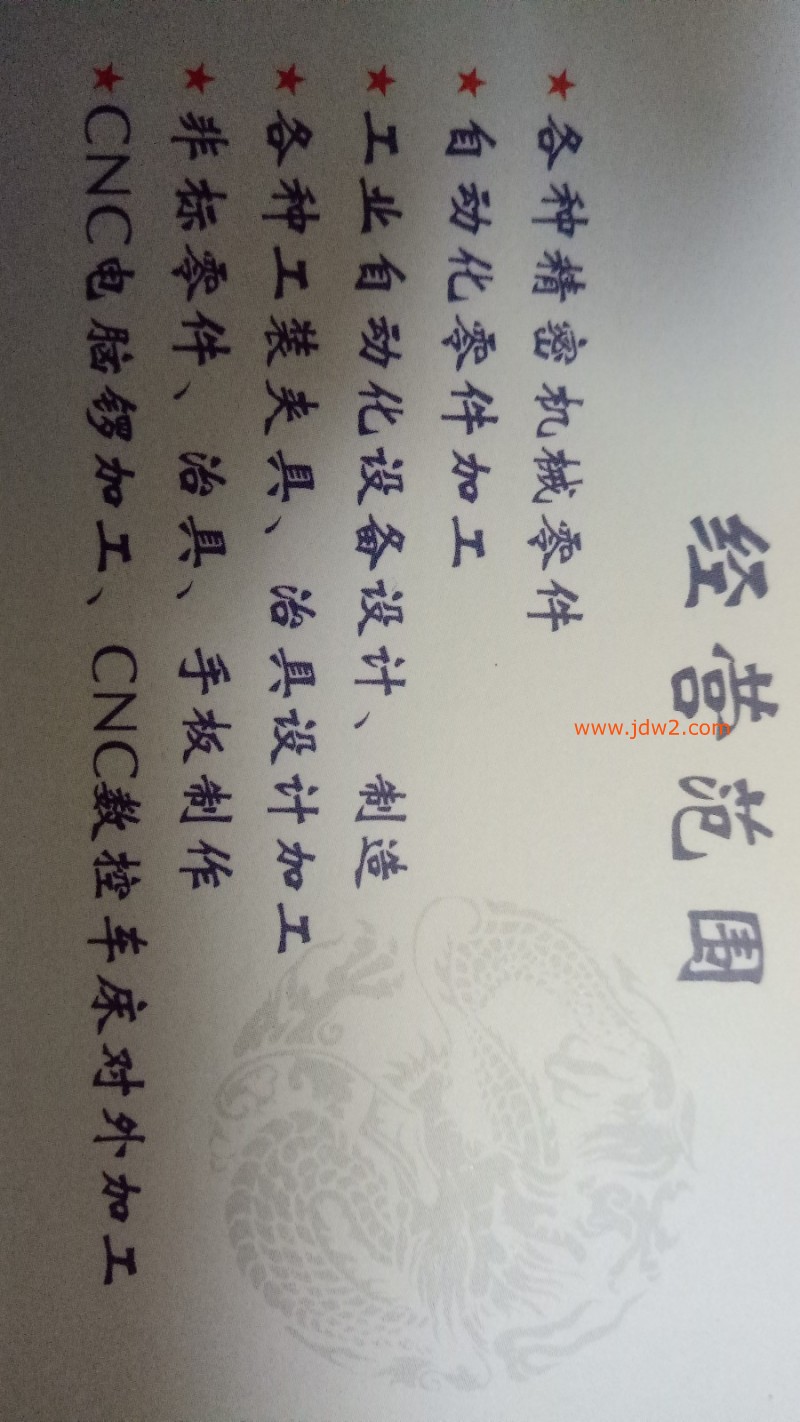 经营范围
★各种精密机械零件
★自动化零件加工
★工业自动化设备设计、制造
★各种工装夹具、治具设计加工
★非标零件、治具、手板制作
★CNC电脑锣加工、CNC数控车床对外加工
www.jdw2.com